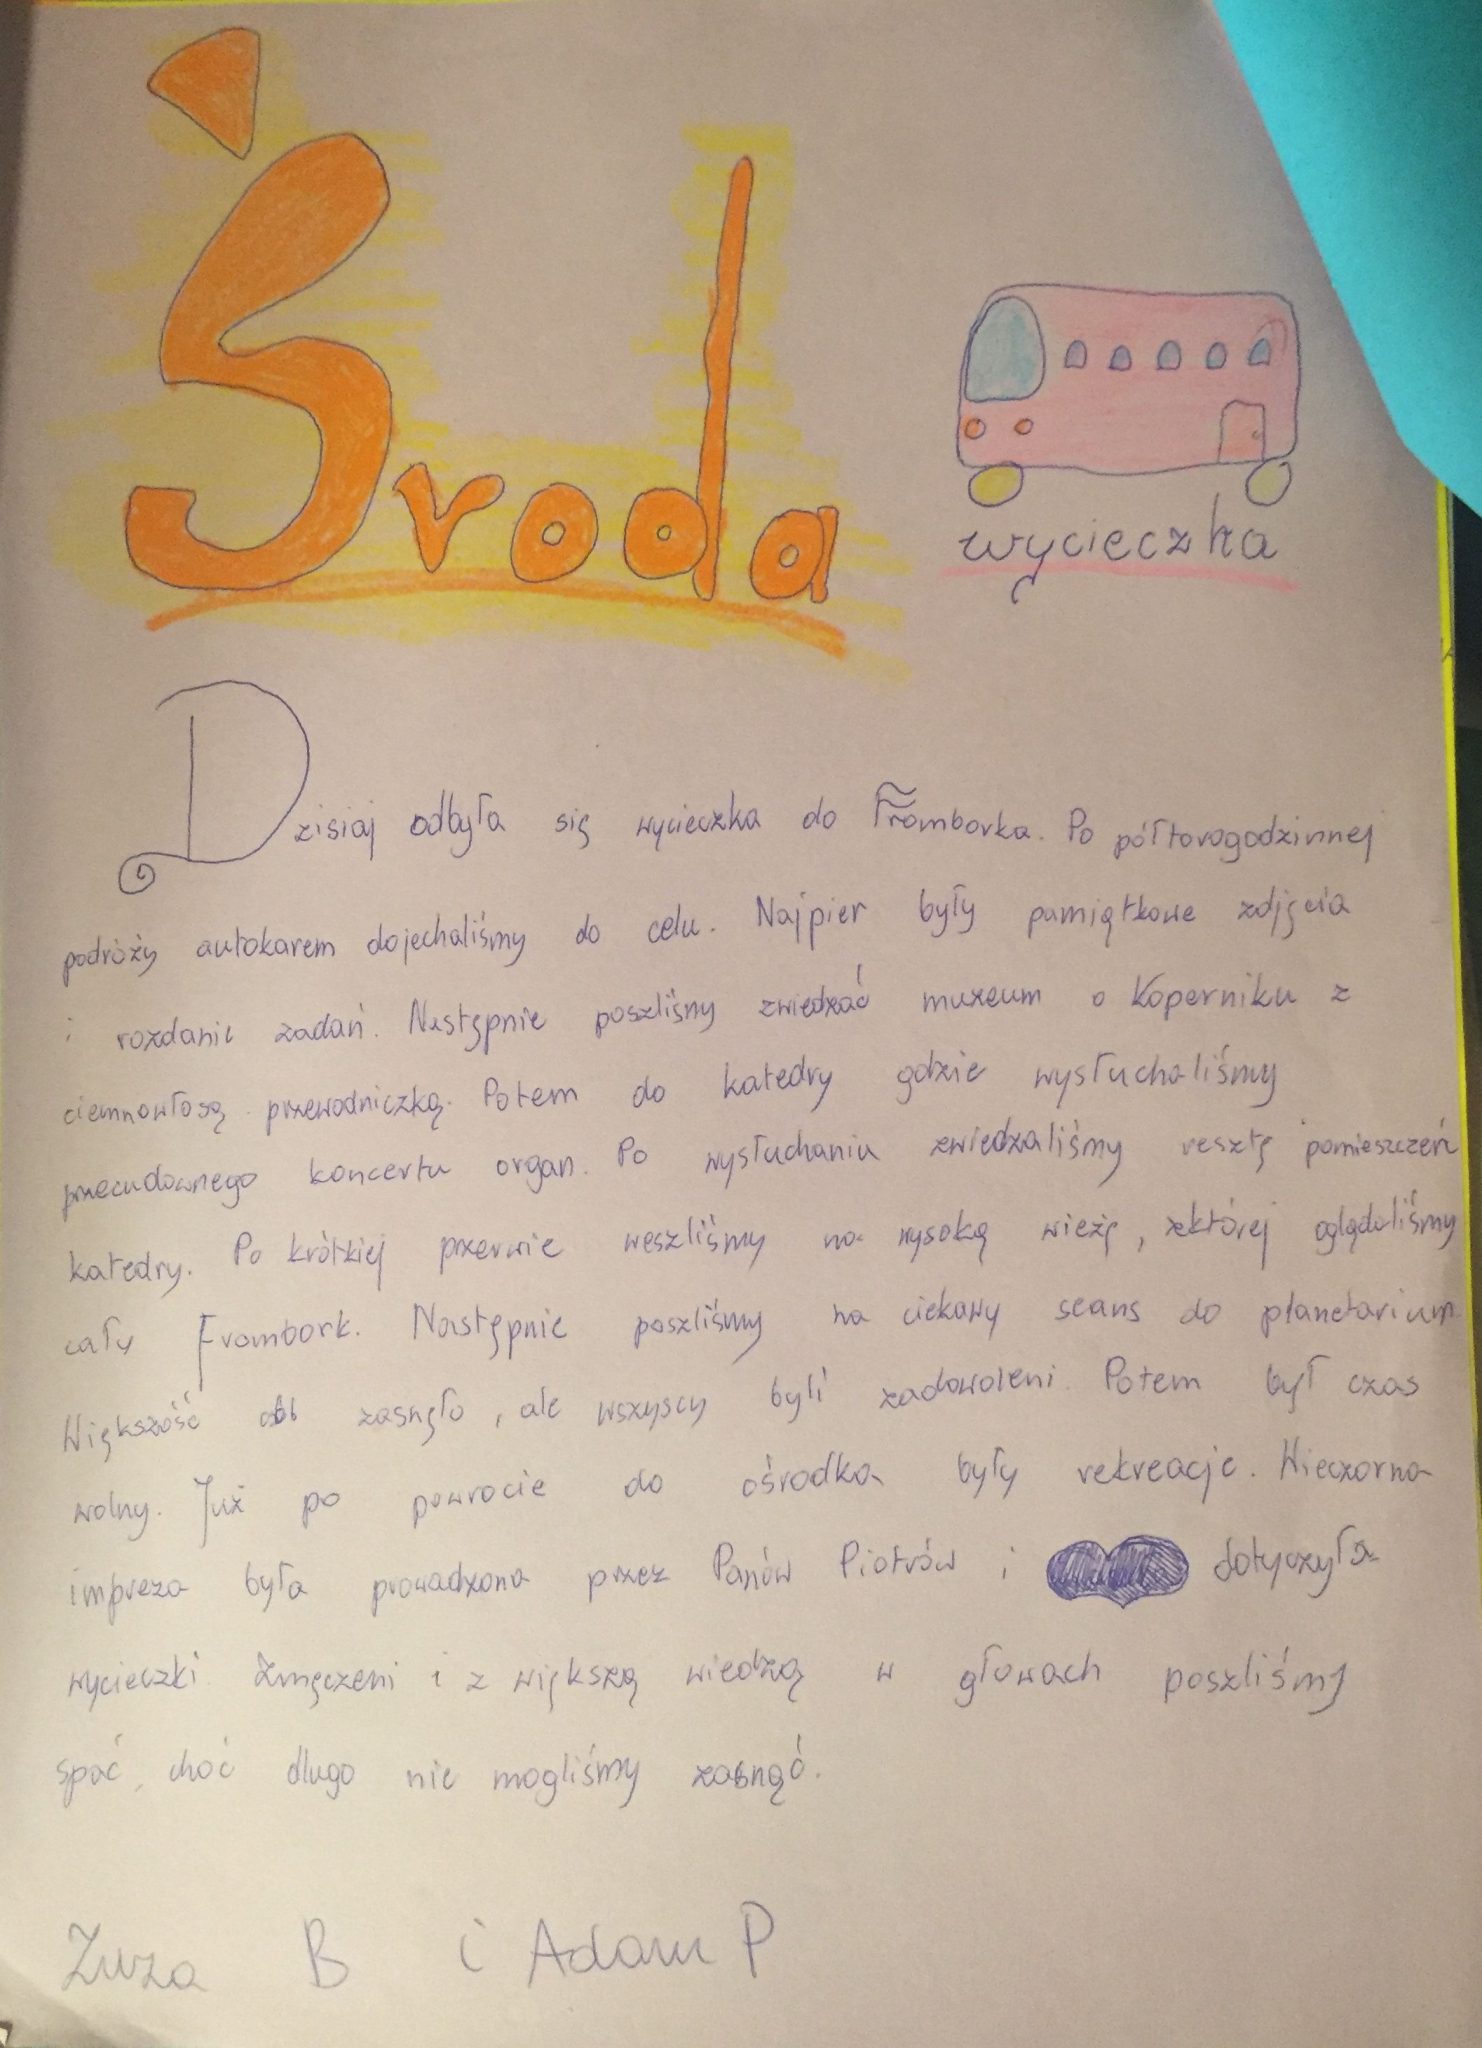 Środa
wycieczka
Dzisiaj odbyła się wycieczka do Fromborka. Po półtoragodzinnej
podróży autokarem dojechaliśmy do celu. Najpier były pamiątkowe zdjęcia
i rozdanie zadań. Następnie poszliśmy zwiedzać muzeum o Koperniku z
ciemnowłosą przewodniczką. Potem do katedry gdzie wysłuchaliśmy
przecudownego koncertu organ. Po wysłuchaniu zwiedzaliśmy resztę pomieszczeń
katedry. Po krótkiej przerwie weszliśmy na wysoką wieżę, zktórej oglądaliśmy
cały Frombork. Następnie poszliśmy na ciekawy seans do planetarium
Większość zasnęło, ale wszyscy byli zadowoleni. Potem był czas
wolny. Już po powrocie do ośrodka były rekreacje. Wieczorna
impreza była prowadzona przez Panów Piotrów i dotyczyła
wycieczki. Zmęczeni i z większą wiedzą w głowach poszliśmy
spać, choć dlugo nie mogliśmy zasnąć.
Zuza B i Adam P